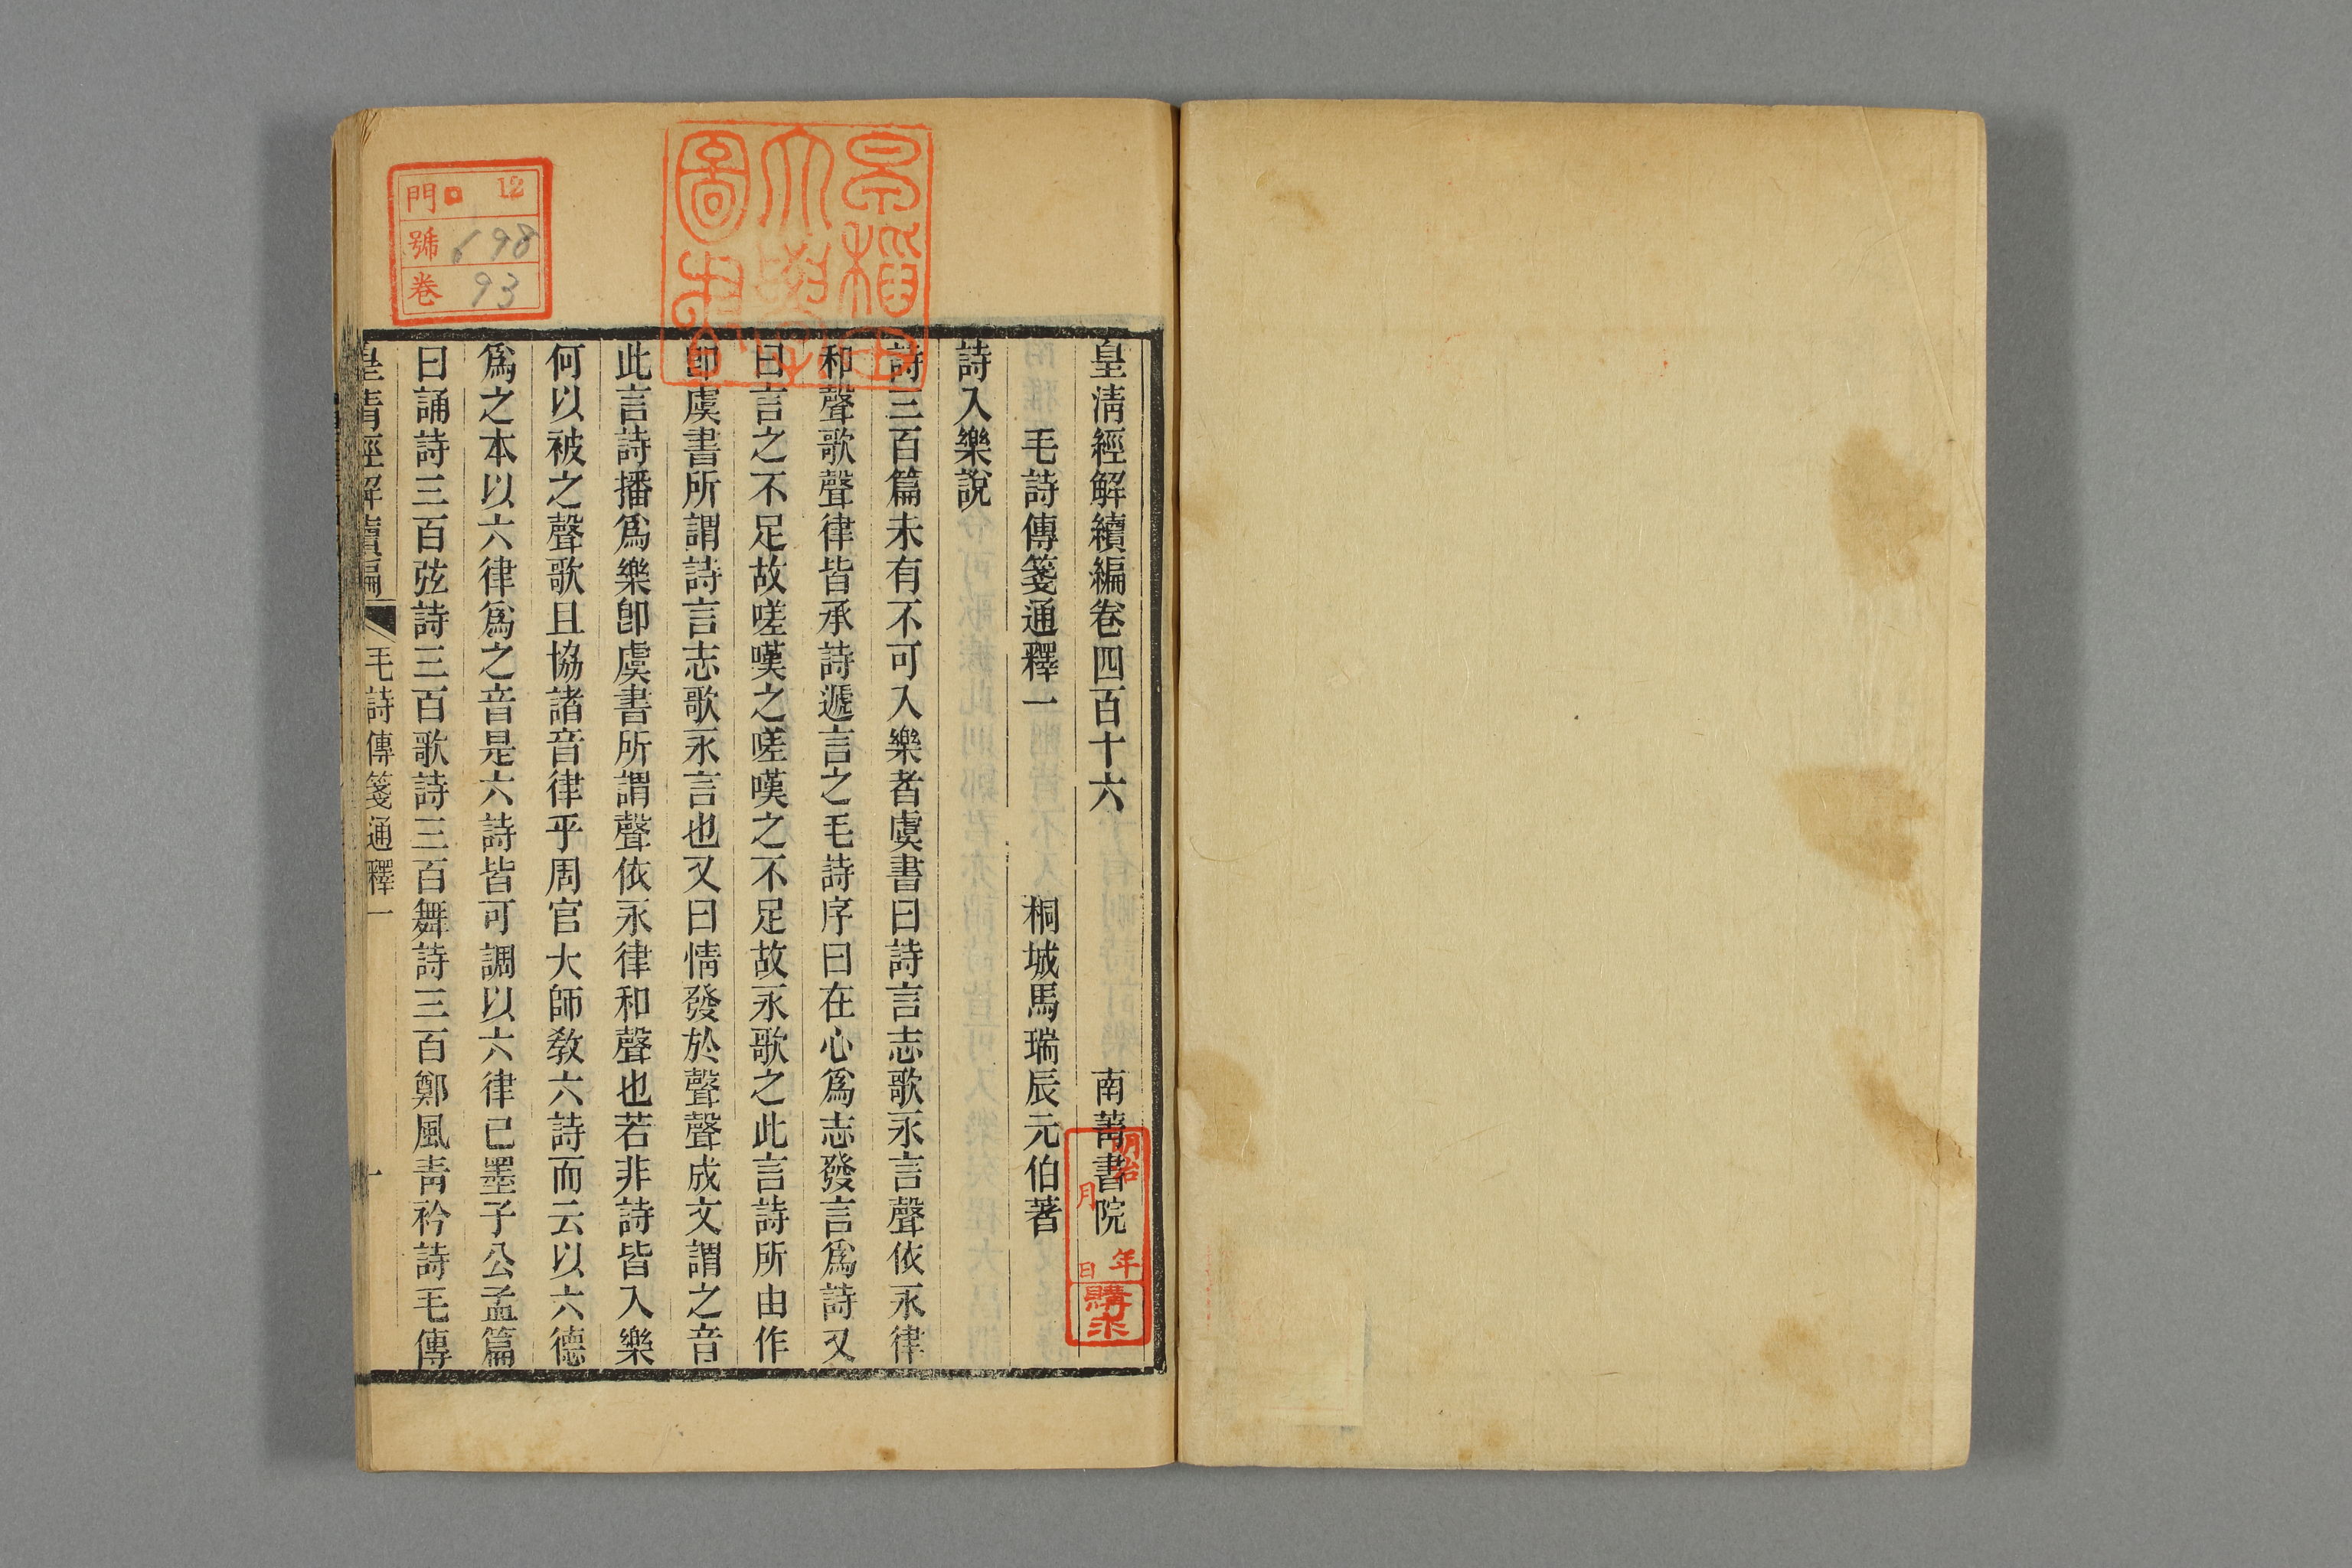 皇清經解續編卷四百十六
南菁書院
毛詩傳箋通釋一
桐城馬瑞辰元伯著
詩入樂說
詩三百篇未有不可入樂者虞書曰詩言志歌永言聲依永律
和聲歌聲律皆承詩遞言之毛詩序曰在心爲志發言爲詩又
曰言之不足故嗟嘆之嗟嘆之不足故永歌之此言詩所由作
卽虞書所謂詩言志歌永言也又曰情發於聲聲成文謂之音
此言詩播爲樂卽虞書所謂聲依永律和聲也若非詩皆入樂
何以被之聲歌且協諸音律乎周官大師敎六詩而云以六德
爲之本以六律爲之音是六詩皆可調以六律已墨子公孟篇
曰誦詩三百弦詩三百歌詩三百舞詩三百鄭風青衿詩毛傳
皇清經解續編
毛詩傳箋通釋一
一
明治
年
月
日
購求
早稲田
大學
圖書
門ロ 12
號 698
卷 93